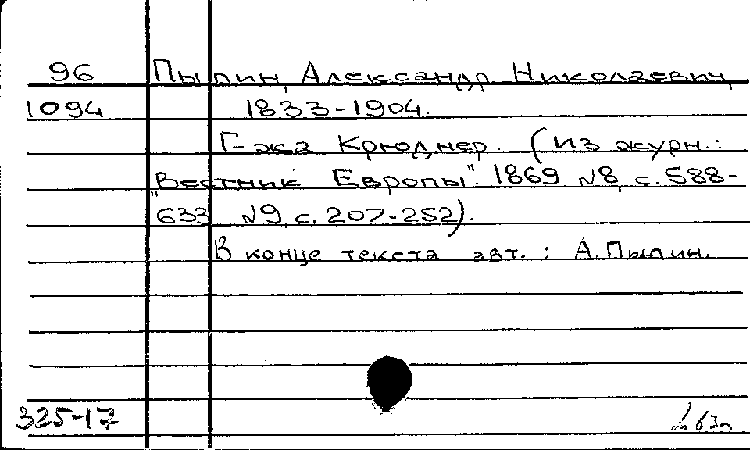 96 Пыпин, Александр Николаевич,
1094 1833-1904.
Г-жа Крюднер. (Из журн.:
"Вестник Европы". 1869 №8, с. 588-
633 №9, с. 207-252).
В конце текста авт.: А. Пыпин.
325-17